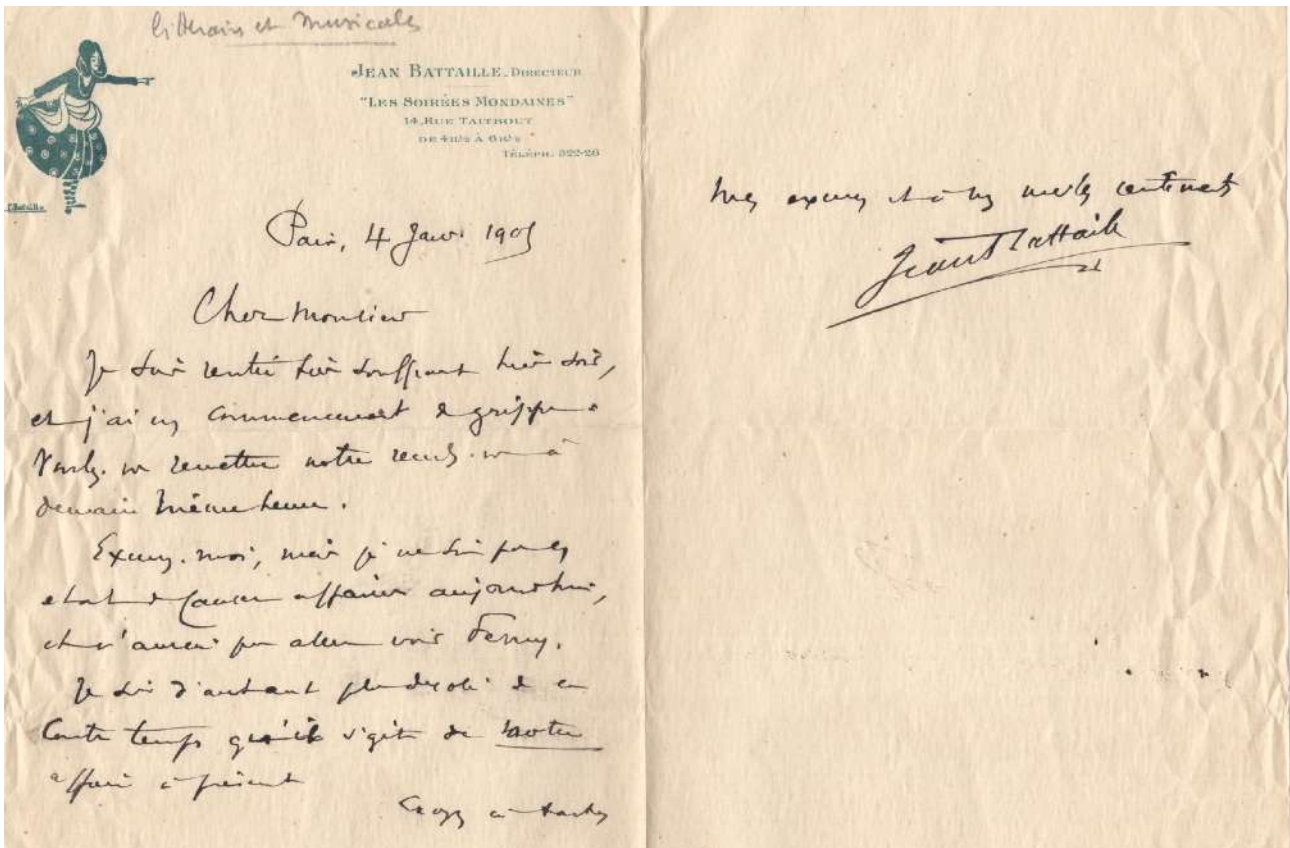 littéraires et musicales
JEAN BATTAILLE. DIRECTEUR
"LES SOIRÉES MONDAINES"
14, RUE TAITBOUT
DE 4H½ À 6H½
TÉLÉPH. 322-26
Paris, 4 Janv. 1905
Cher Monsieur
Je suis rentré très souffrant hier soir,
et j'ai un commencement de grippe.
Voulez-vous remettre notre rendez-vous à
demain même heure.
Excusez-moi, mais je ne suis pas en
état de causer affaires aujourd'hui,
et n'aurai pu aller voir Ferny.
Je suis d'autant plus désolé de ce
contre temps qu'il s'agit de notre
affaire à présent
Croyez à toutes
mes excuses et à mes meilleurs sentiments
Jean Battaille